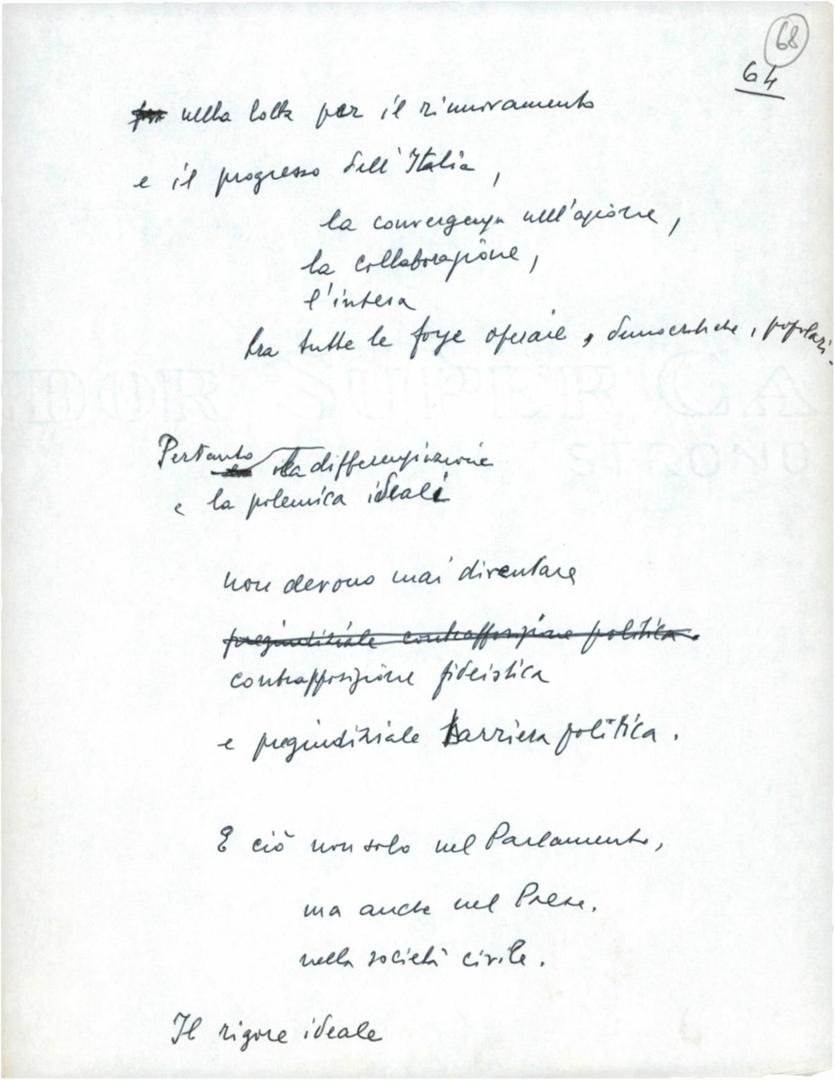 68
64
nella lotta per il rinnovamento
e il progresso dell'Italia,
la convergenza nell'azione,
la collaborazione,
l'intesa
tra tutte le forze operaie, democratiche, popolari.
Pertanto la differenziazione
e la polemica ideali
non devono mai diventare
pregiudiziale contrapposizione politica.
contrapposizione fideistica
e pregiudiziale barriera politica.
E ciò non solo nel Parlamento,
ma anche nel Paese,
nella società civile.
Il rigore ideale